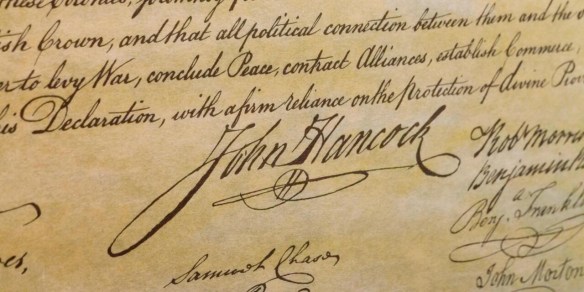 these Colonies,
ish Crown, and that all political connection between them and the
er to levy War, conclude Peace, contract Alliances, establish Commerce,
his Declaration, with a firm reliance on the Protection of divine Pro
John Hancock
Robt Morris
Benjamin
Benj. Frankl
Samuel Chase
John Morton